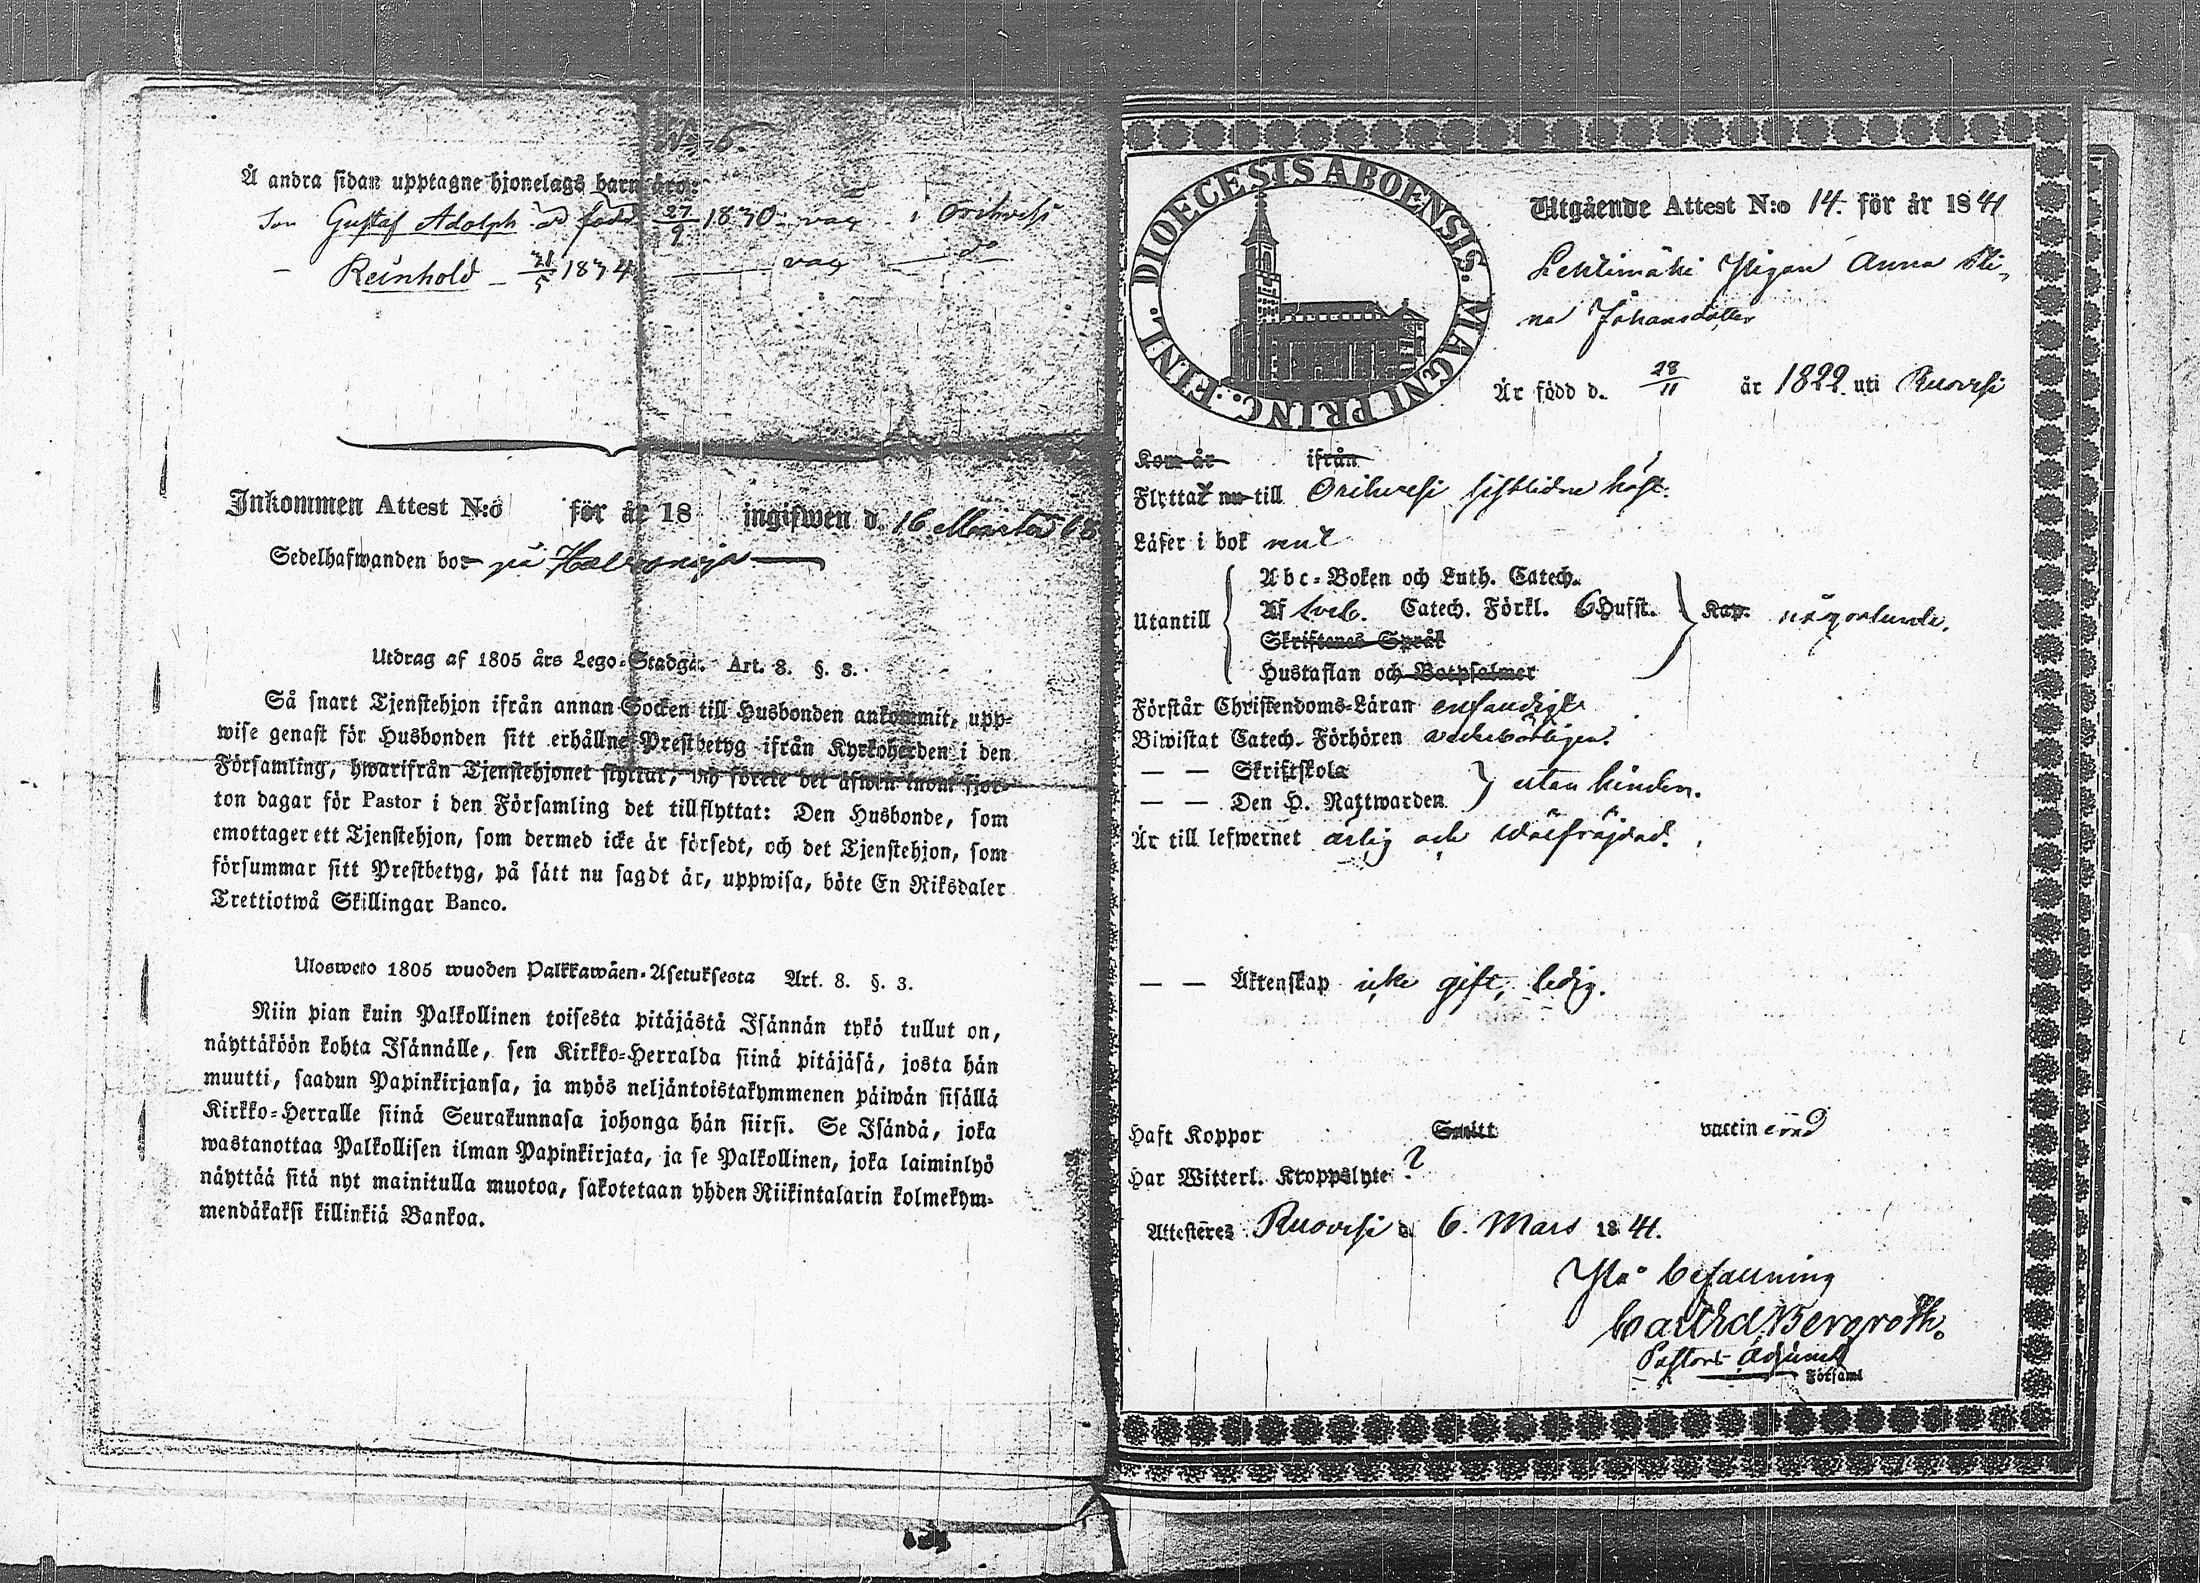 No 6.
Å andra sidan upptagne hjonelags barn äro:
Son Gustaf Adolph född 27/9 1830 vac i Orihvesi
— Reinhold — 21/5 1834 — vac — do
Inkommen Attest N:o för år 18 ingifwen d. 16 Martii
Sedelhafwanden bor på
Utdrag af 1805 års Lego-Stadga. Art. 8. §. 3.
Så snart Tjenstehjon ifrån annan Socken till Husbonden ankommit, upp-
wise genast för Husbonden sitt erhållne Prestbetyg ifrån Kyrkoherden i den
Församling, hwarifrån Tjenstehjonet flyttat, och förete det äfwen inom fjor-
ton dagar för Pastor i den Församling det tillflyttat: Den Husbonde, som
emottager ett Tjenstehjon, som dermed icke är försedt, och det Tjenstehjon, som
försummar sitt Prestbetyg, på sätt nu sagdt är, uppwisa, böte En Riksdaler
Trettiotwå Skillingar Banco.
Uloswето 1805 wuoden Palkkawäen-Asetuksesta Art. 8. §. 3.
Niin pian kuin Palkollinen toisesta pitäjästä Isännän tykö tullut on,
näyttäköön kohta Isännälle, sen Kirkko-Herralda siinä pitäjäsä, josta hän
muutti, saadun Papinkirjansa, ja myös neljäntoistakymmenen päiwän sisällä
Kirkko-Herralle siinä Seurakunnasa johonga hän siirsi. Se Isändä, joka
wastanottaa Palkollisen ilman Papinkirjata, ja se Palkollinen, joka laiminlyö
näyttää sitä nyt mainitulla muotoa, sakotetaan yhden Riikintalarin kolmekym-
mendäkaksi killinkiä Bankoa.
DIOECESIS ABOENSIS. MAGNI PRINC: FINL.
Utgående Attest N:o 14. för år 1841
Lehtimäki Pigan Anna Sti-
na Johansdotter
Är född d. 28/11 år 1822. uti Ruovesi
Kom år ifrån
Flyttat nu till Orihvesi sistlidne höst.
Läser i bok nut
Utantill
Abc-Boken och Luth. Catech.
Af Sveb. Catech. Förkl. 6 Hufst. Kap. någorlunda.
Skriftenes Språk
Hustaflan och Botpsalmer
Förstår Christendoms-Läran enfaldigt
Biwistat Catech. Förhören vederbörligen.
— — Skriftskola
— — Den H. Nattwarden utan hinder.
Är till lefwernet ärlig och wälfrägdad.
— — Äktenskap icke gift, ledig.
Haft Koppor Smitt vaccinerad
Har Witterl. Kroppslyte ?
Attesteres Ruovesi d. 6. Mars 1841.
På befallning
Carl Ed. Bergroth.
Pastors Adjunct
Församl